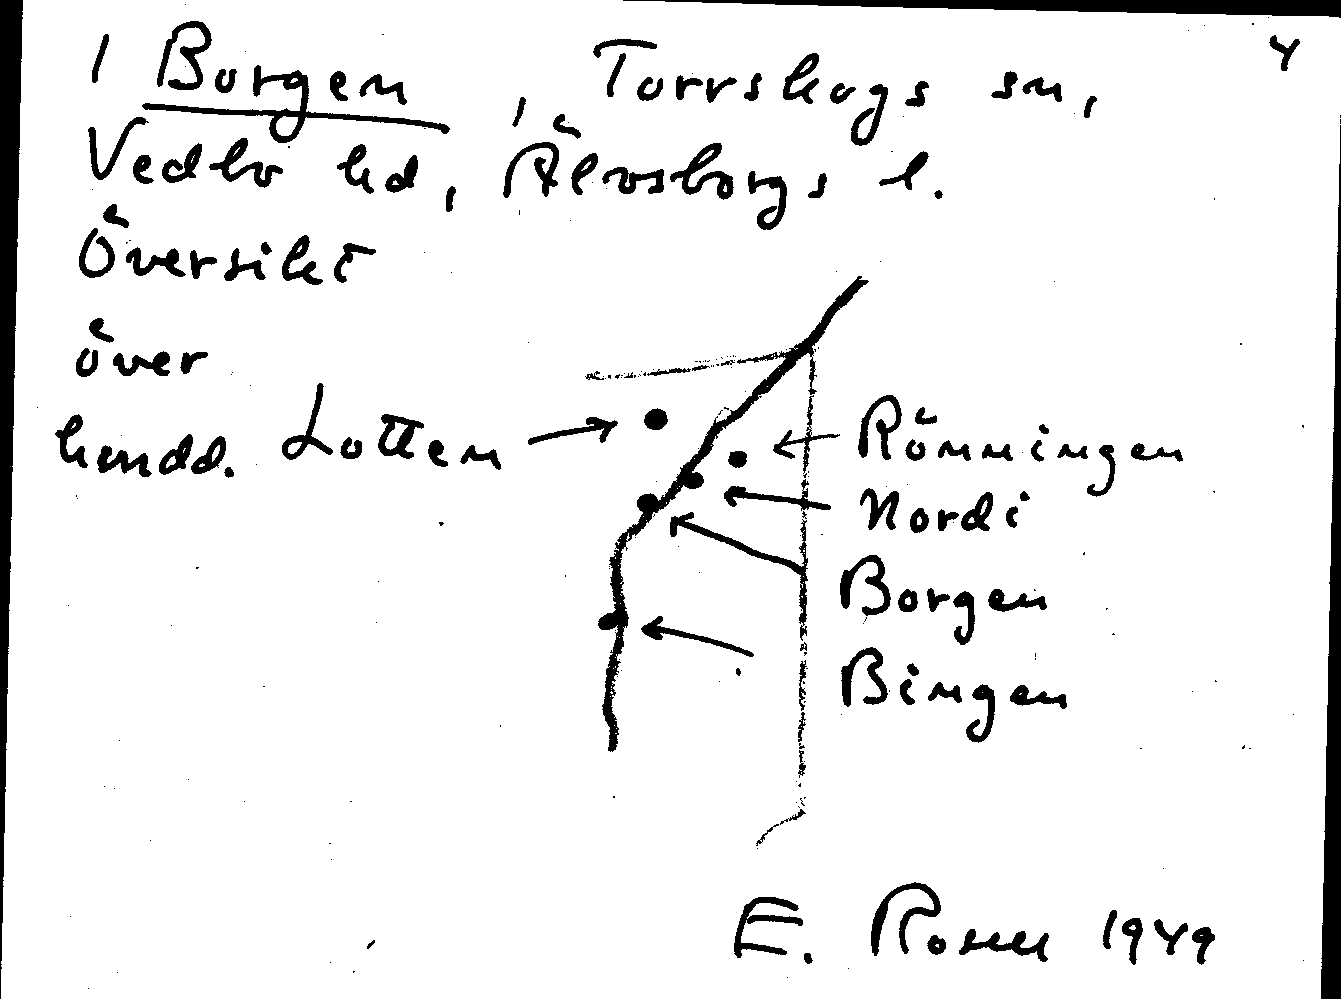 4
1 Borgen, Torrskogs sn,
Vedbo hd, Älvsborgs l.
Översikt
över
hemdd. Lotten
Rönningen
Nordi
Borgen
Bingen
E. Rosell 1949